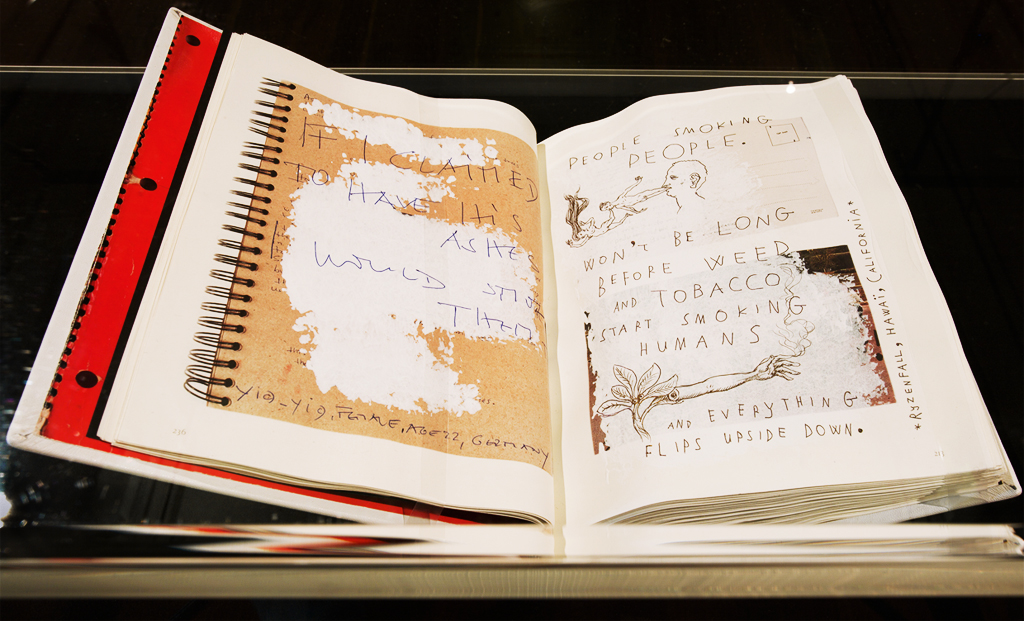 IF I CLAIMED
TO HAVE ITS
ASHES
WOULD
THEM
YIG-YIG, FEMALE, AGE 22, GERMANY
236
PEOPLE SMOKING
PEOPLE.
WON'T BE LONG
BEFORE WEED
AND TOBACCO
START SMOKING
HUMANS
AND EVERYTHING
FLIPS UPSIDE DOWN.
*RYZENFALL, HAWAÏ, CALIFORNIA*